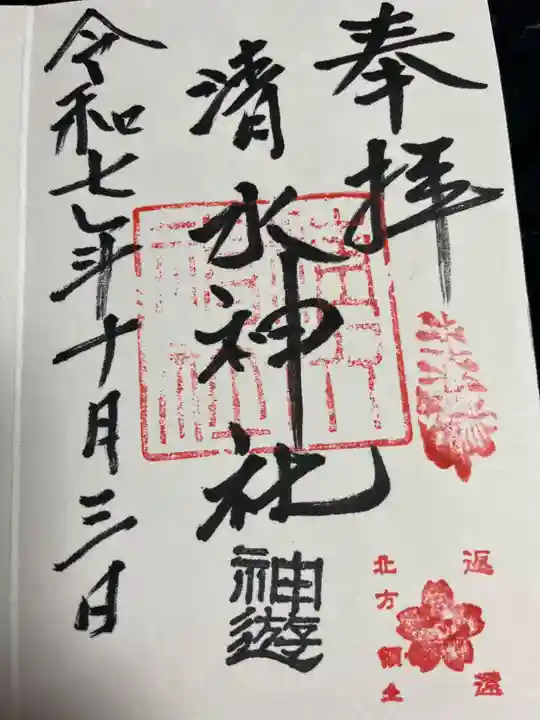 奉拝
清水神社
神遊
令和七年十月三日
北方領土
返還